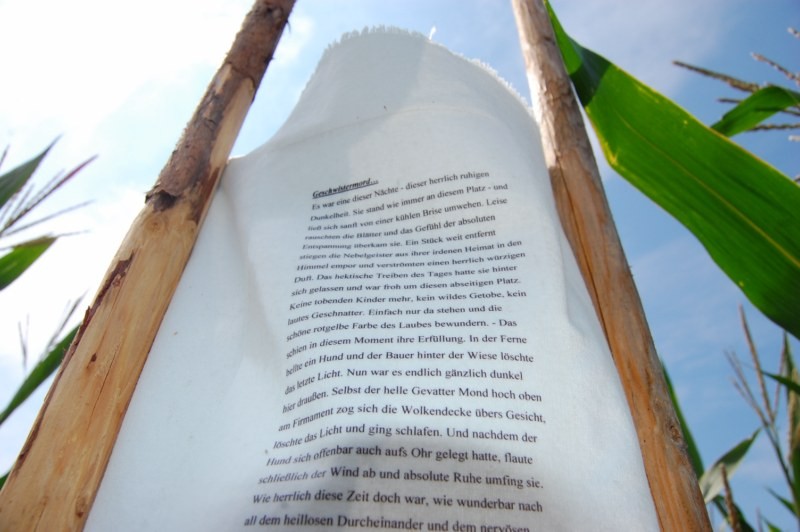 Geschwistermord...
Es war eine dieser Nächte - dieser herrlich ruhigen
Dunkelheit. Sie stand wie immer an diesem Platz - und
ließ sich sanft von einer kühlen Brise umwehen. Leise
rauschten die Blätter und das Gefühl der absoluten
Entspannung überkam sie. Ein Stück weit entfernt
stiegen die Nebelgeister aus ihrer irdenen Heimat in den
Himmel empor und verströmten einen herrlich würzigen
Duft. Das hektische Treiben des Tages hatte sie hinter
sich gelassen und war froh um diesen abseitigen Platz.
Keine tobenden Kinder mehr, kein wildes Getobe, kein
lautes Geschnatter. Einfach nur da stehen und die
schöne rotgelbe Farbe des Laubes bewundern. - Das
schien in diesem Moment ihre Erfüllung. In der Ferne
bellte ein Hund und der Bauer hinter der Wiese löschte
das letzte Licht. Nun war es endlich gänzlich dunkel
hier draußen. Selbst der helle Gevatter Mond hoch oben
am Firmament zog sich die Wolkendecke übers Gesicht,
löschte das Licht und ging schlafen. Und nachdem der
Hund sich offenbar auch aufs Ohr gelegt hatte, flaute
schließlich der Wind ab und absolute Ruhe umfing sie.
Wie herrlich diese Zeit doch war, wie wunderbar nach
all dem heillosen Durcheinander und dem nervösen